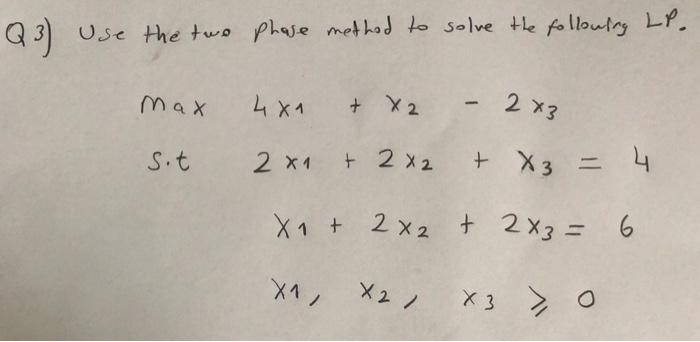 Q3) Use the two phase method to solve the following LP.
max 4x1 + x2 - 2x3
s.t 2x1 + 2x2 + x3 = 4
x1 + 2x2 + 2x3 = 6
x1, x2, x3 ⩾ 0